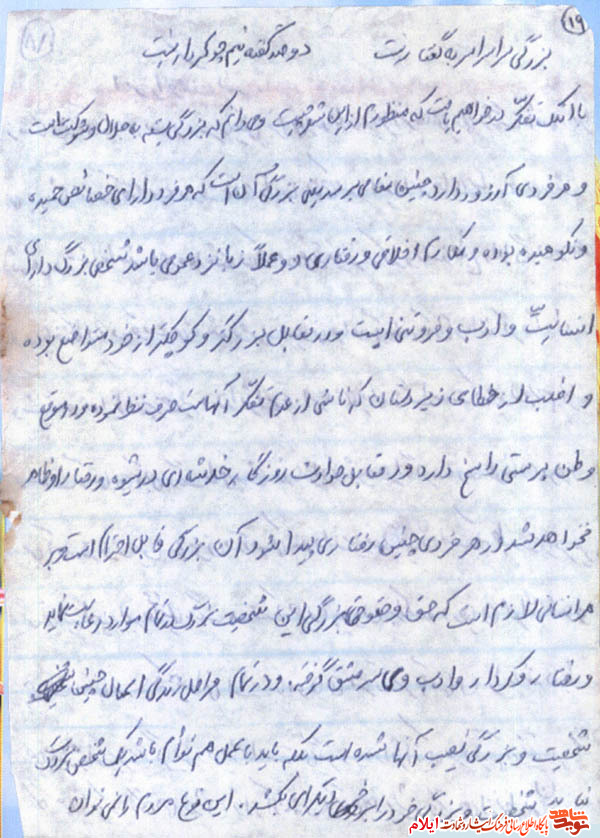 ۱۹
۸۱
بزرگی سراسر به گفتار نیست دو صد گفته نیم چو کردار نیست
با اندک تفکر در خواهیم یافت که منظورم از این شعر چیست و می دانم که بزرگی بسته به جلال و شوکت نیست
و هر فردی آرزو دارد چنین مقامی برسد یعنی بزرگی آن است که هر فرد دارای خصائص حمیده
و نکوهیده بوده و مکارم اخلاقی و رفتاری و عملاً زبانزد عمومی باشد شخص بزرگ دارای
انسانیت و ادب و فروتنی است و در مقابل بزرگتر و کوچکتر از خود متواضع بوده
و اغلب از خطاهای زیردستان که ناشی از عدم تفکر آنهاست صرف نظر نموده و در موقع
وطن پرستی راسخ داره و در مقابل حوادث روزگار خدشه ای در شیوه و رفتار او ظاهر
نخواهد شد از هر فردی چنین رفتاری پیدا شود آن بزرگی قابل احترام است و بر
هر انسانی لازم است که حق و حقوق بزرگی این شخصیت بزرگ در تمام موارد رعایت نماید
و رفتار و کردار و ادب وی سرمشق گرفته و در تمام مراحل زندگی اعمال چنین
شخصیت و بزرگی نصیب آنها شده است بلکه باید با عمل هم توأم باشد یک شخص بزرگ
شخصیت و بزرگی خود را به دیگری بکشد . این نوع مردم را می توان
نوید شاهد
پایگاه اطلاع رسانی فرهنگ ایثار و شهادت ایلام